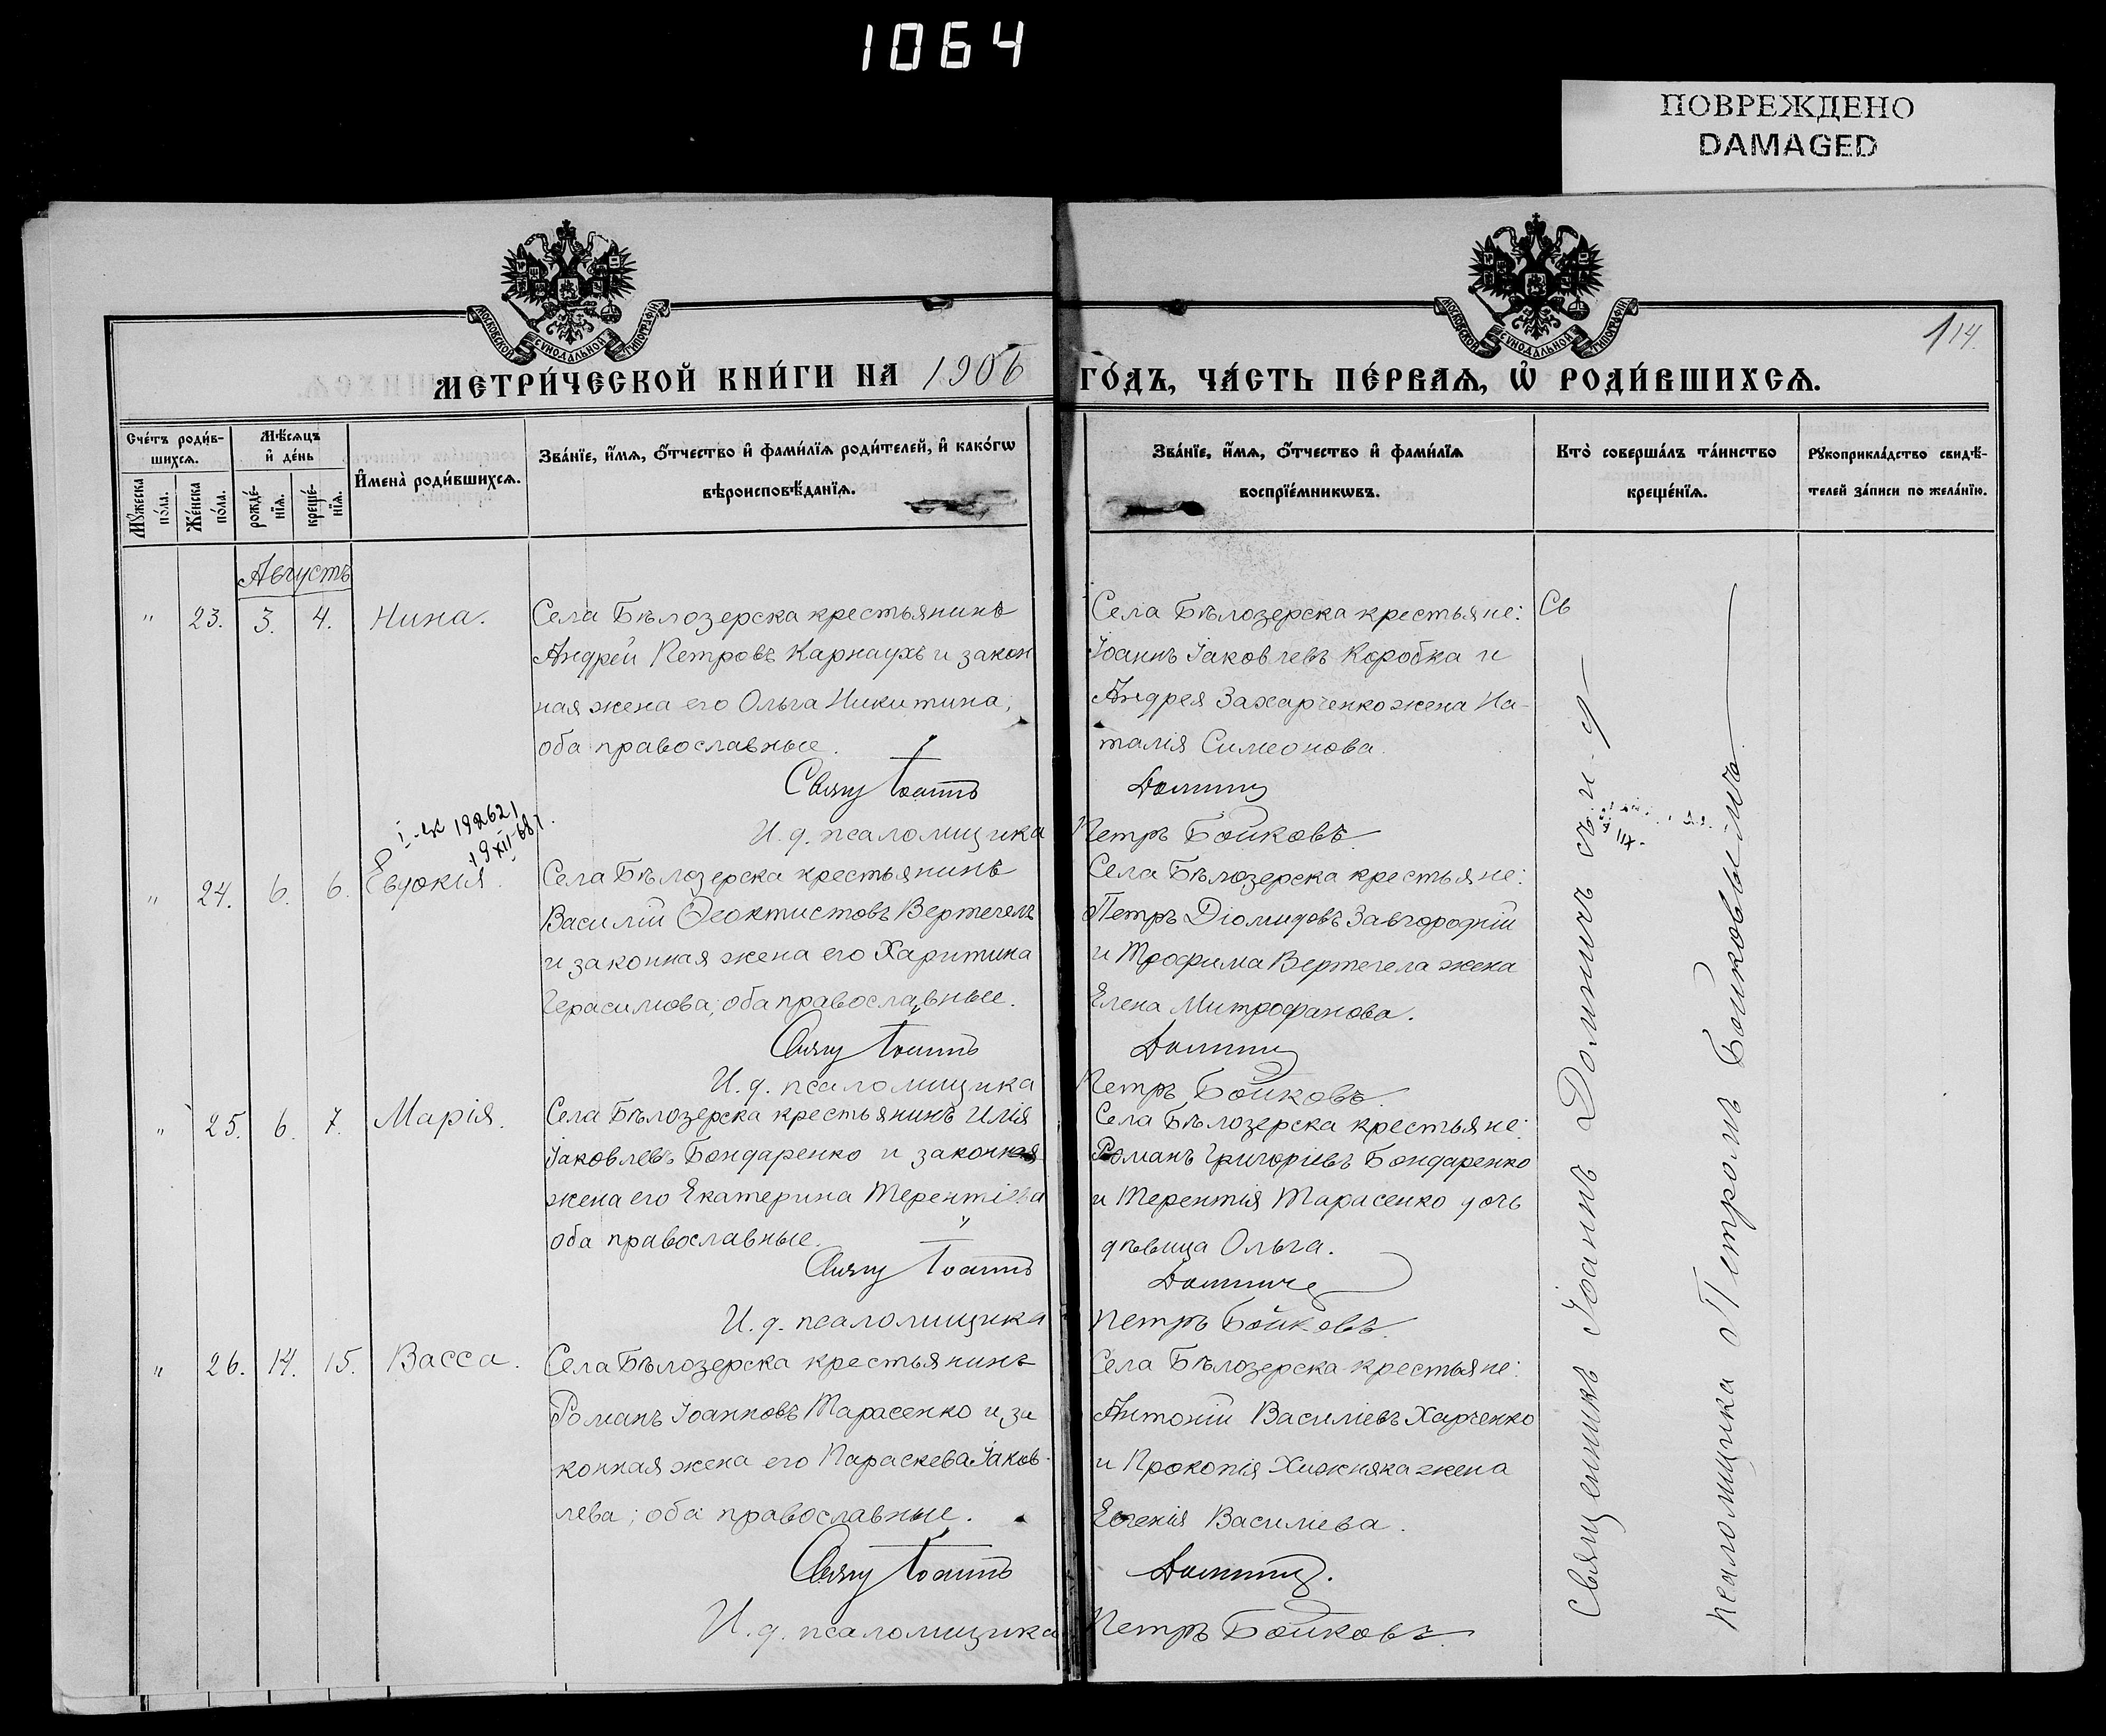 1064
ПОВРЕЖДЕНО
DAMAGED
МОСКОВСКОЙ СѴНОДАЛЬНОЙ ТИПОГРАФІИ
МОСКОВСКОЙ СѴНОДАЛЬНОЙ ТИПОГРАФІИ
114.
МЕТРИ́ЧЕСКОЙ КНИ́ГИ НА 1906 ГО́ДЪ, ЧА́СТЬ ПЕ́РВАѦ, Ѡ҆ РОДИ́ВШИХСѦ.
Сче́тъ роди́в-
шихсѧ.
Мꙋ́жеска по́ла.
Же́нска по́ла.
Мѣ́сѧцъ
и҆ де́нь
рожде́-
нїѧ.
креще́-
нїѧ.
И҆мена̀ роди́вшихсѧ.
Зва́нїе, и҆́мѧ, ѻ҆́тчество и҆ фами́лїѧ роди́телей, и҆ како́гѡ
вѣроисповѣ́данїѧ.
Зва́нїе, и҆́мѧ, ѻ҆́тчество и҆ фами́лїѧ
воспрїе́мникѡвъ.
Кто̀ соверша́лъ та́инство
креще́нїѧ.
Рꙋкоприкла́дство свидѣ́-
телей за́писи по жела́нїю.
Августъ
" 23. 3. 4. Нина.
Села Бѣлозерска крестьянинъ
Андрей Петровъ Карнаухъ и закон
ная жена его Ольга Никитина;
оба православные.
Свящ Іоаннъ
И. д. псаломщика
Села Бѣлозерска крестьяне:
Іоаннъ Іаковлевъ Коробка и
Андрея Захарченко жена На-
талія Симеонова.
Долинич
Петръ Бойковъ.
192621
" 24. 6. 6. Евдокія.
Села Бѣлозерска крестьянинъ
Василій Ѳеоктистовъ Вертегелъ
и законная жена его Харитина
Герасимова; оба православные.
Свящ Іоаннъ
И. д. псаломщика
Села Бѣлозерска крестьяне:
Петръ Діомидовъ Завгородній
и Трофима Вертегела жена
Елена Митрофанова.
Долинич
Петръ Бойковъ.
" 25. 6. 7. Марія.
Села Бѣлозерска крестьянинъ Илія
Іаковлевъ Бондаренко и законная
жена его Екатерина Терентіева
оба православные.
Свящ Іоаннъ
И. д. псаломщика
Села Бѣлозерска крестьяне:
Романъ Григоріевъ Бондаренко
и Терентія Тарасенко дочь
дѣвица Ольга.
Долинич
Петръ Бойковъ.
" 26. 14. 15. Васса.
Села Бѣлозерска крестьянинъ
Романъ Іоанновъ Тарасенко и за
конная жена его Параскева Іаков-
лева; оба православные.
Свящ Іоаннъ
И. д. псаломщика
Села Бѣлозерска крестьяне:
Антоній Василіевъ Харченко
и Прокопія Хижняка жена
Евгенія Василіева.
Долинич.
Петръ Бойковъ.
Св
Священникъ Іоаннъ Долиничъ съ и. д.
псаломщика Петромъ Бойковымъ